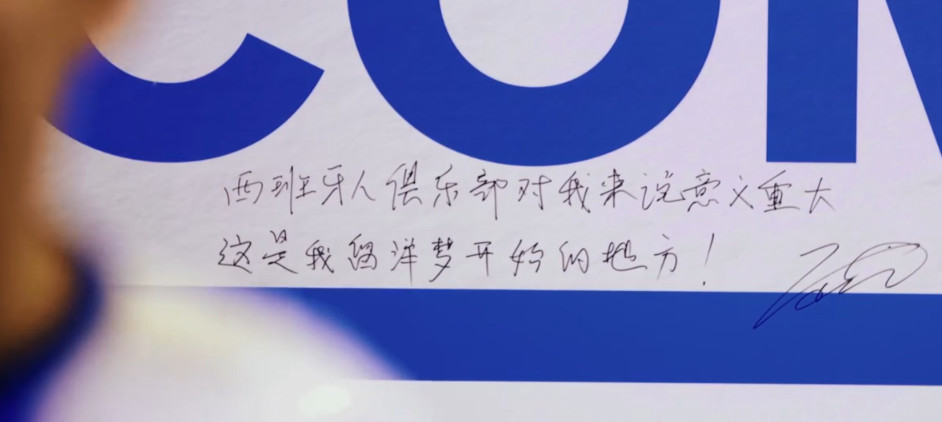 西班牙人俱乐部对我来说意义重大
这是我留洋梦开始的地方！